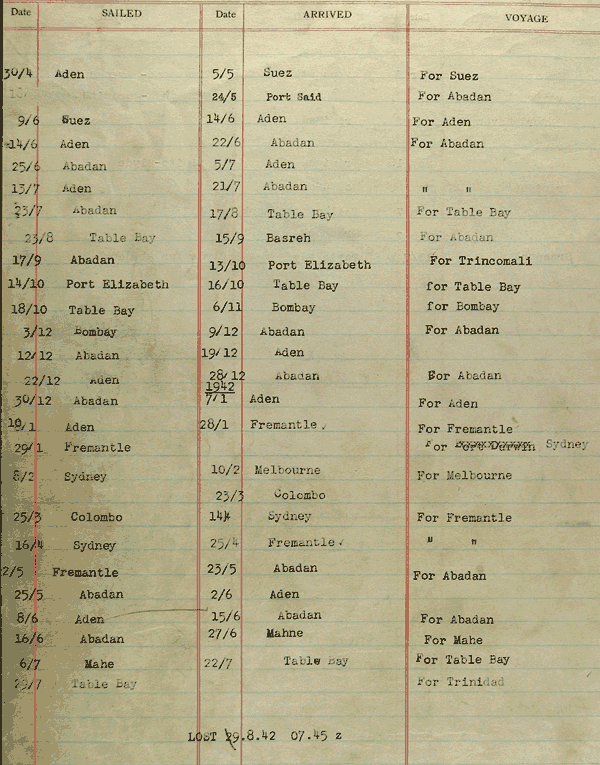 Date SAILED Date ARRIVED VOYAGE
30/4 Aden 5/5 Suez For Suez
24/5 Port Said For Abadan
9/6 Suez 14/6 Aden For Aden
14/6 Aden 22/6 Abadan For Abadan
25/6 Abadan 5/7 Aden
13/7 Aden 21/7 Abadan " "
23/7 Abadan 17/8 Table Bay For Table Bay
23/8 Table Bay 15/9 Basreh For Abadan
17/9 Abadan 13/10 Port Elizabeth For Trincomali
14/10 Port Elizabeth 16/10 Table Bay for Table Bay
18/10 Table Bay 6/11 Bombay for Bombay
3/12 Bombay 9/12 Abadan For Abadan
12/12 Abadan 19/12 Aden
22/12 Aden 28/12 Abadan For Abadan
1942
30/12 Abadan 7/1 Aden For Aden
10/1 Aden 28/1 Fremantle For Fremantle
29/1 Fremantle For Port Darwin Sydney
8/2 Sydney 10/2 Melbourne For Melbourne
23/3 Colombo
25/3 Colombo 14/4 Sydney For Fremantle
16/4 Sydney 25/4 Fremantle " "
2/5 Fremantle 23/5 Abadan For Abadan
25/5 Abadan 2/6 Aden
8/6 Aden 15/6 Abadan For Abadan
16/6 Abadan 27/6 Mahne For Mahe
6/7 Mahe 22/7 Table Bay For Table Bay
29/7 Table Bay For Trinidad
LOST 29.8.42 07.45 z